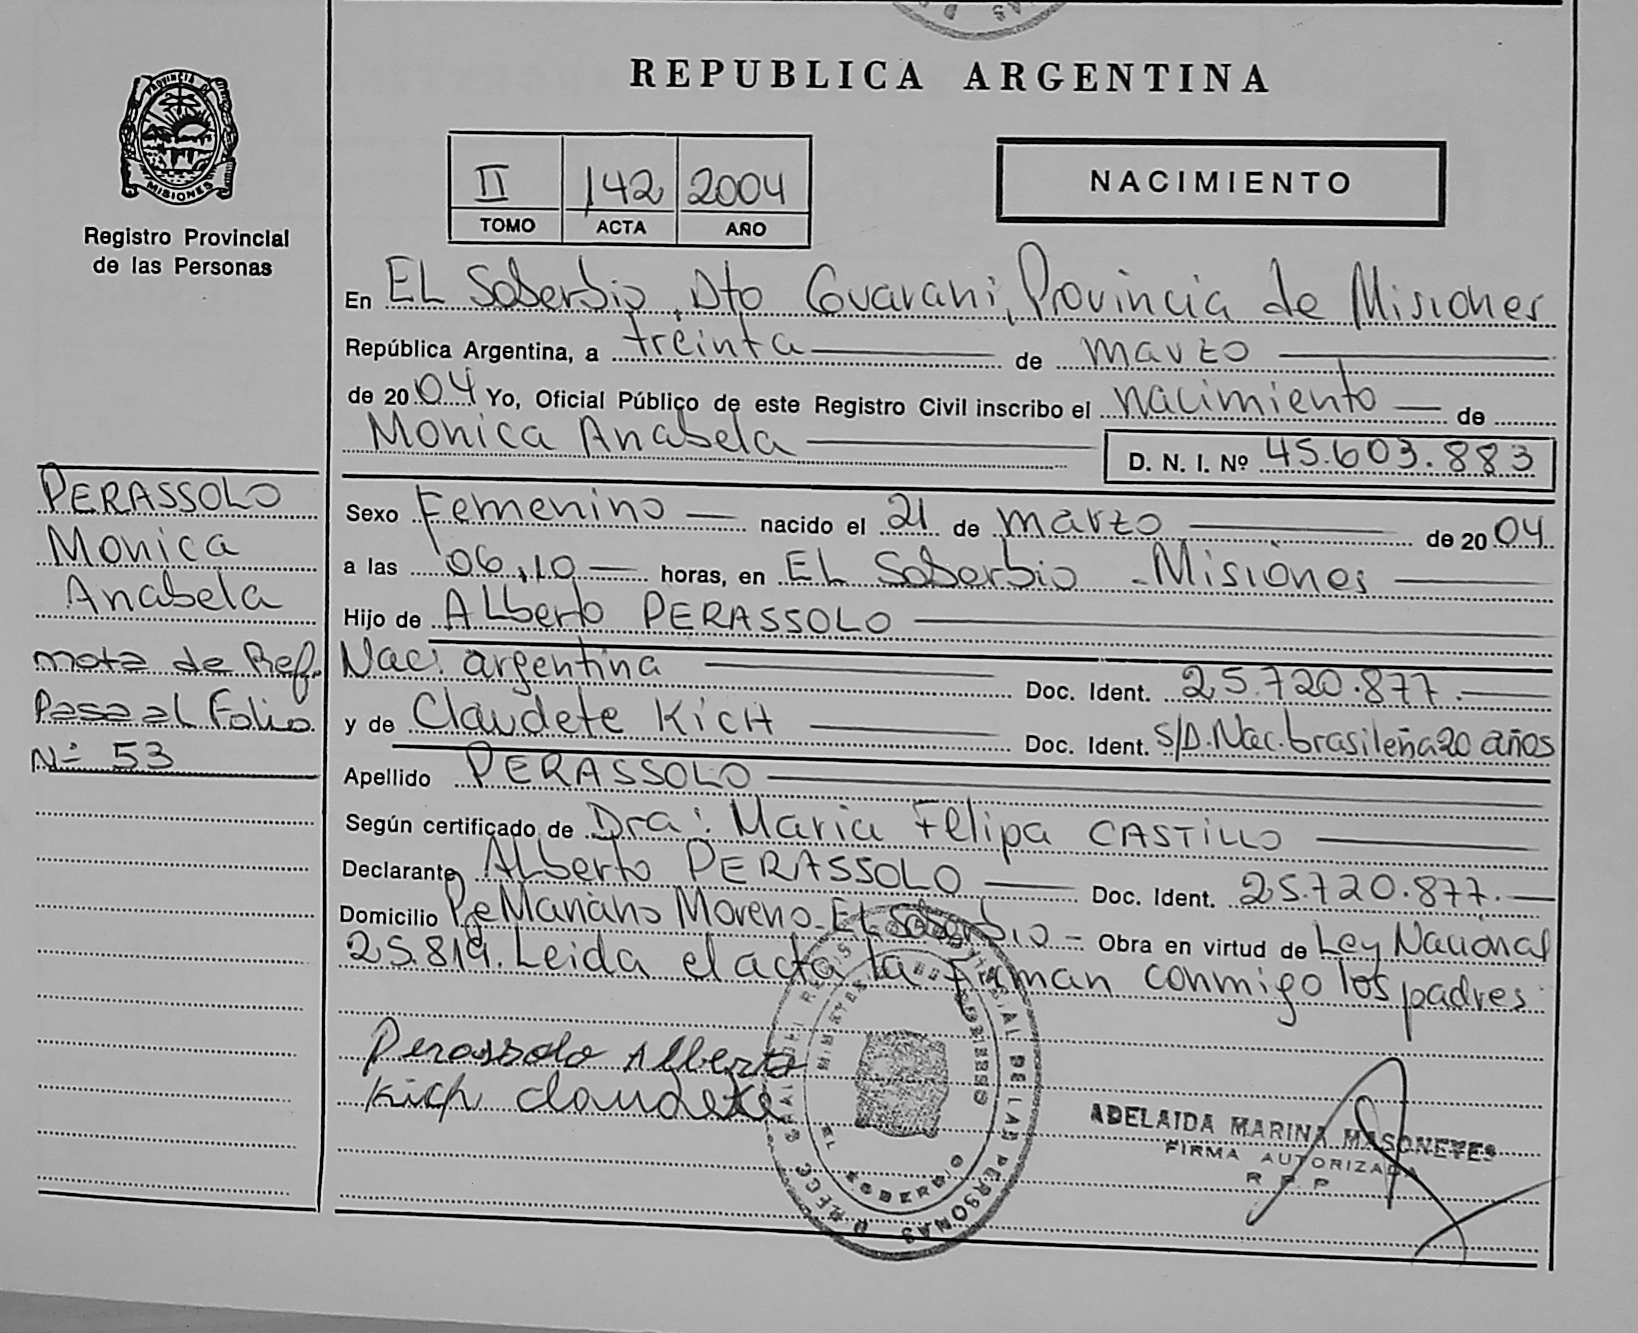 REPUBLICA ARGENTINA
PROVINCIA DE
MISIONES
Registro Provincial
de las Personas
II 142 2004
TOMO ACTA AÑO
NACIMIENTO
En EL Soberbio, Dto Guarani, Provincia de Misiones
República Argentina, a treinta de marzo
de 2004 Yo, Oficial Público de este Registro Civil inscribo el nacimiento de
Monica Anabela D. N. I. Nº 45.603.883
Sexo Femenino nacido el 21 de marzo de 2004
a las 06,10 horas, en EL Soberbio - Misiones
Hijo de ALberto PERASSOLO
Nac: argentina Doc. Ident. 25.720.877.
y de Claudete KicH Doc. Ident. S/D. Nac. brasileña 20 años
Apellido PERASSOLO
Según certificado de Dra: Maria Felipa CASTILLO
Declarante ALberto PERASSOLO Doc. Ident. 25.720.877.
Domicilio Pje Mariano Moreno - EL Soberbio - Obra en virtud de Ley Nacional
25.819. Leida el acta la firman conmigo los padres
Perassolo Alberto
Kich Claudete
ADELAIDA MARINA
FIRMA AUTORIZADA
R P P
EL SOBERBIO
DE LAS PERSONAS
PERASSOLO
Monica
Anabela
nota de Ref.
Pasa al Folio
Nº 53